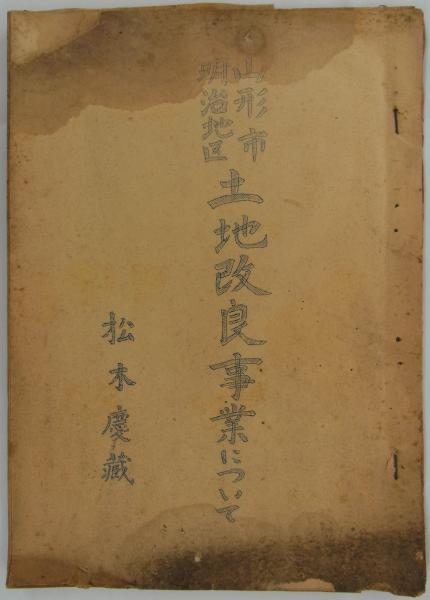 山形市
明治地区
土地改良事業について
松木慶藏